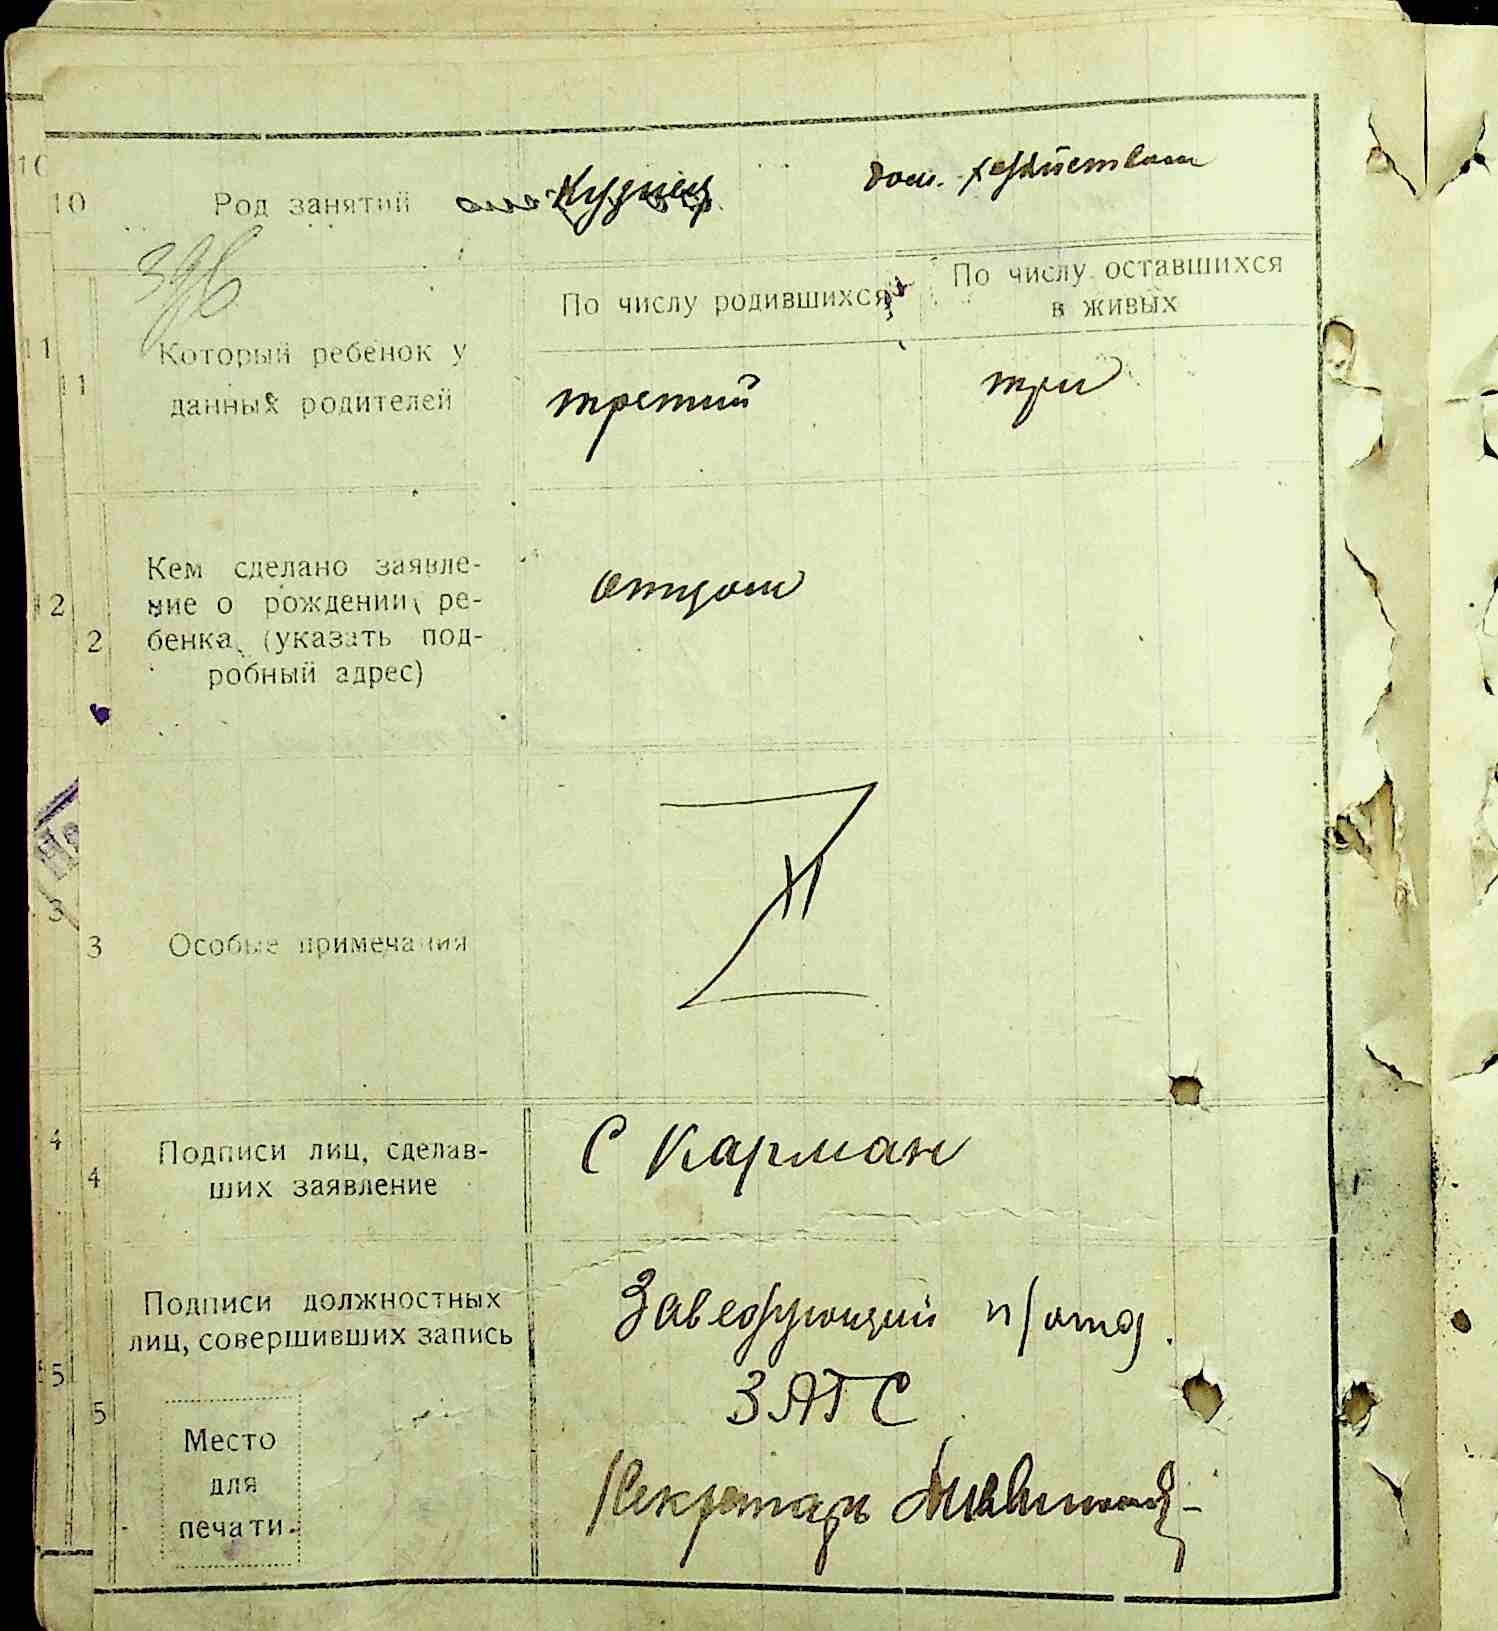 10
10 Род занятий Кузнец дом. хозяйством
По числу родившихся По числу оставшихся
в живых
11 Который ребенок у
11 данных родителей третий три
Кем сделано заявле-
12 ние о рождении ре-
2 бенка (указать под-
робный адрес) отцом
3
3 Особые примечания
4 Подписи лиц, сделав-
4 ших заявление С Карман
Подписи должностных
лиц, совершивших запись Заведующий п/отд.
15 ЗАГС
5 Место
для
печати. Секретарь